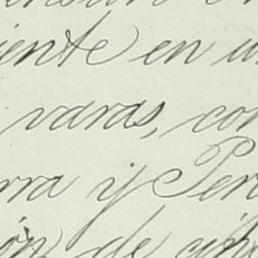 iente en u
varas, con
rra y Per
ón de